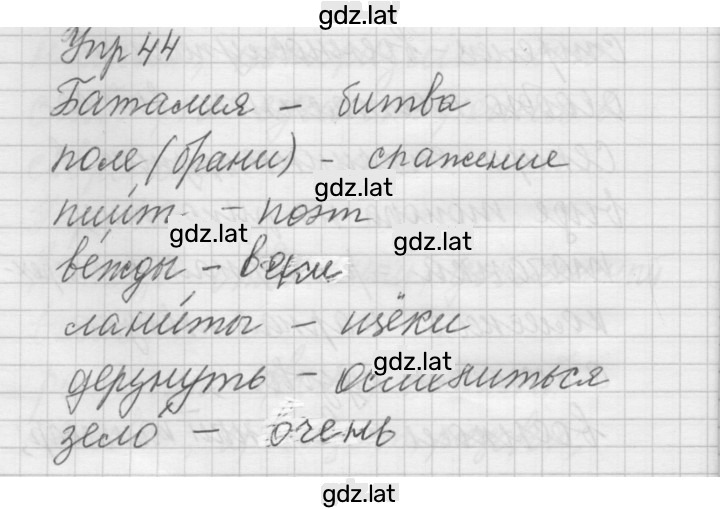 gdz.lat
Упр 44
Баталия – битва
поле (брани) – сражение
gdz.lat
пии́т – поэт
gdz.lat
gdz.lat
ве́жды – веки
лани́ты – щёки
gdz.lat
дерзнуть – осмелиться
зело́ – очень
gdz.lat